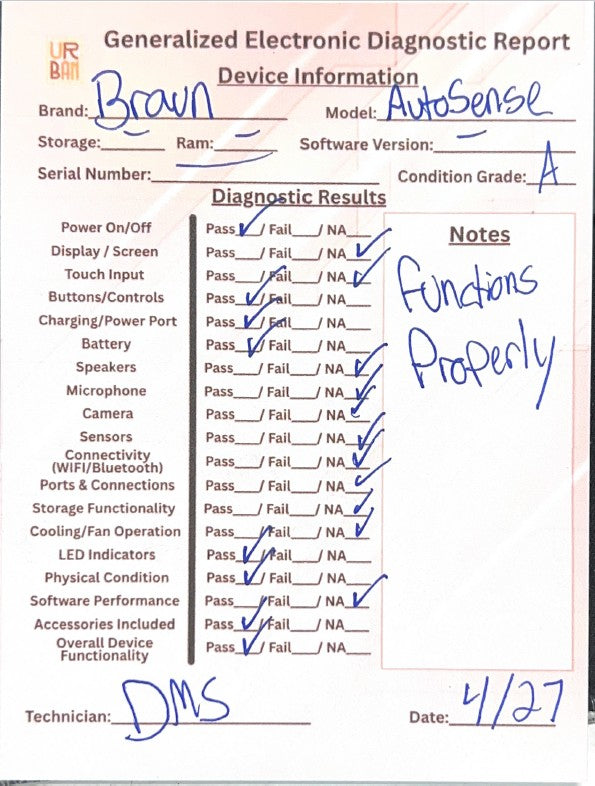 UR
BAN
Generalized Electronic Diagnostic Report
Device Information
Brand: Braun Model: AutoSense
Storage: — Ram: — Software Version: —
Serial Number: Condition Grade: A
Diagnostic Results
Power On/Off Pass ✓/ Fail___/ NA___
Display / Screen Pass___/ Fail___/ NA ✓
Touch Input Pass___/ Fail___/ NA ✓
Buttons/Controls Pass ✓/ Fail___/ NA___
Charging/Power Port Pass ✓/ Fail___/ NA___
Battery Pass ✓/ Fail___/ NA___
Speakers Pass___/ Fail___/ NA ✓
Microphone Pass___/ Fail___/ NA ✓
Camera Pass___/ Fail___/ NA ✓
Sensors Pass___/ Fail___/ NA ✓
Connectivity
(WIFI/Bluetooth) Pass___/ Fail___/ NA ✓
Ports & Connections Pass___/ Fail___/ NA ✓
Storage Functionality Pass___/ Fail___/ NA ✓
Cooling/Fan Operation Pass___/ Fail___/ NA ✓
LED Indicators Pass ✓/ Fail___/ NA___
Physical Condition Pass ✓/ Fail___/ NA___
Software Performance Pass___/ Fail___/ NA ✓
Accessories Included Pass ✓/ Fail___/ NA___
Overall Device
Functionality Pass ✓/ Fail___/ NA___
Notes
Functions
Properly
Technician: DMS Date: 4/27